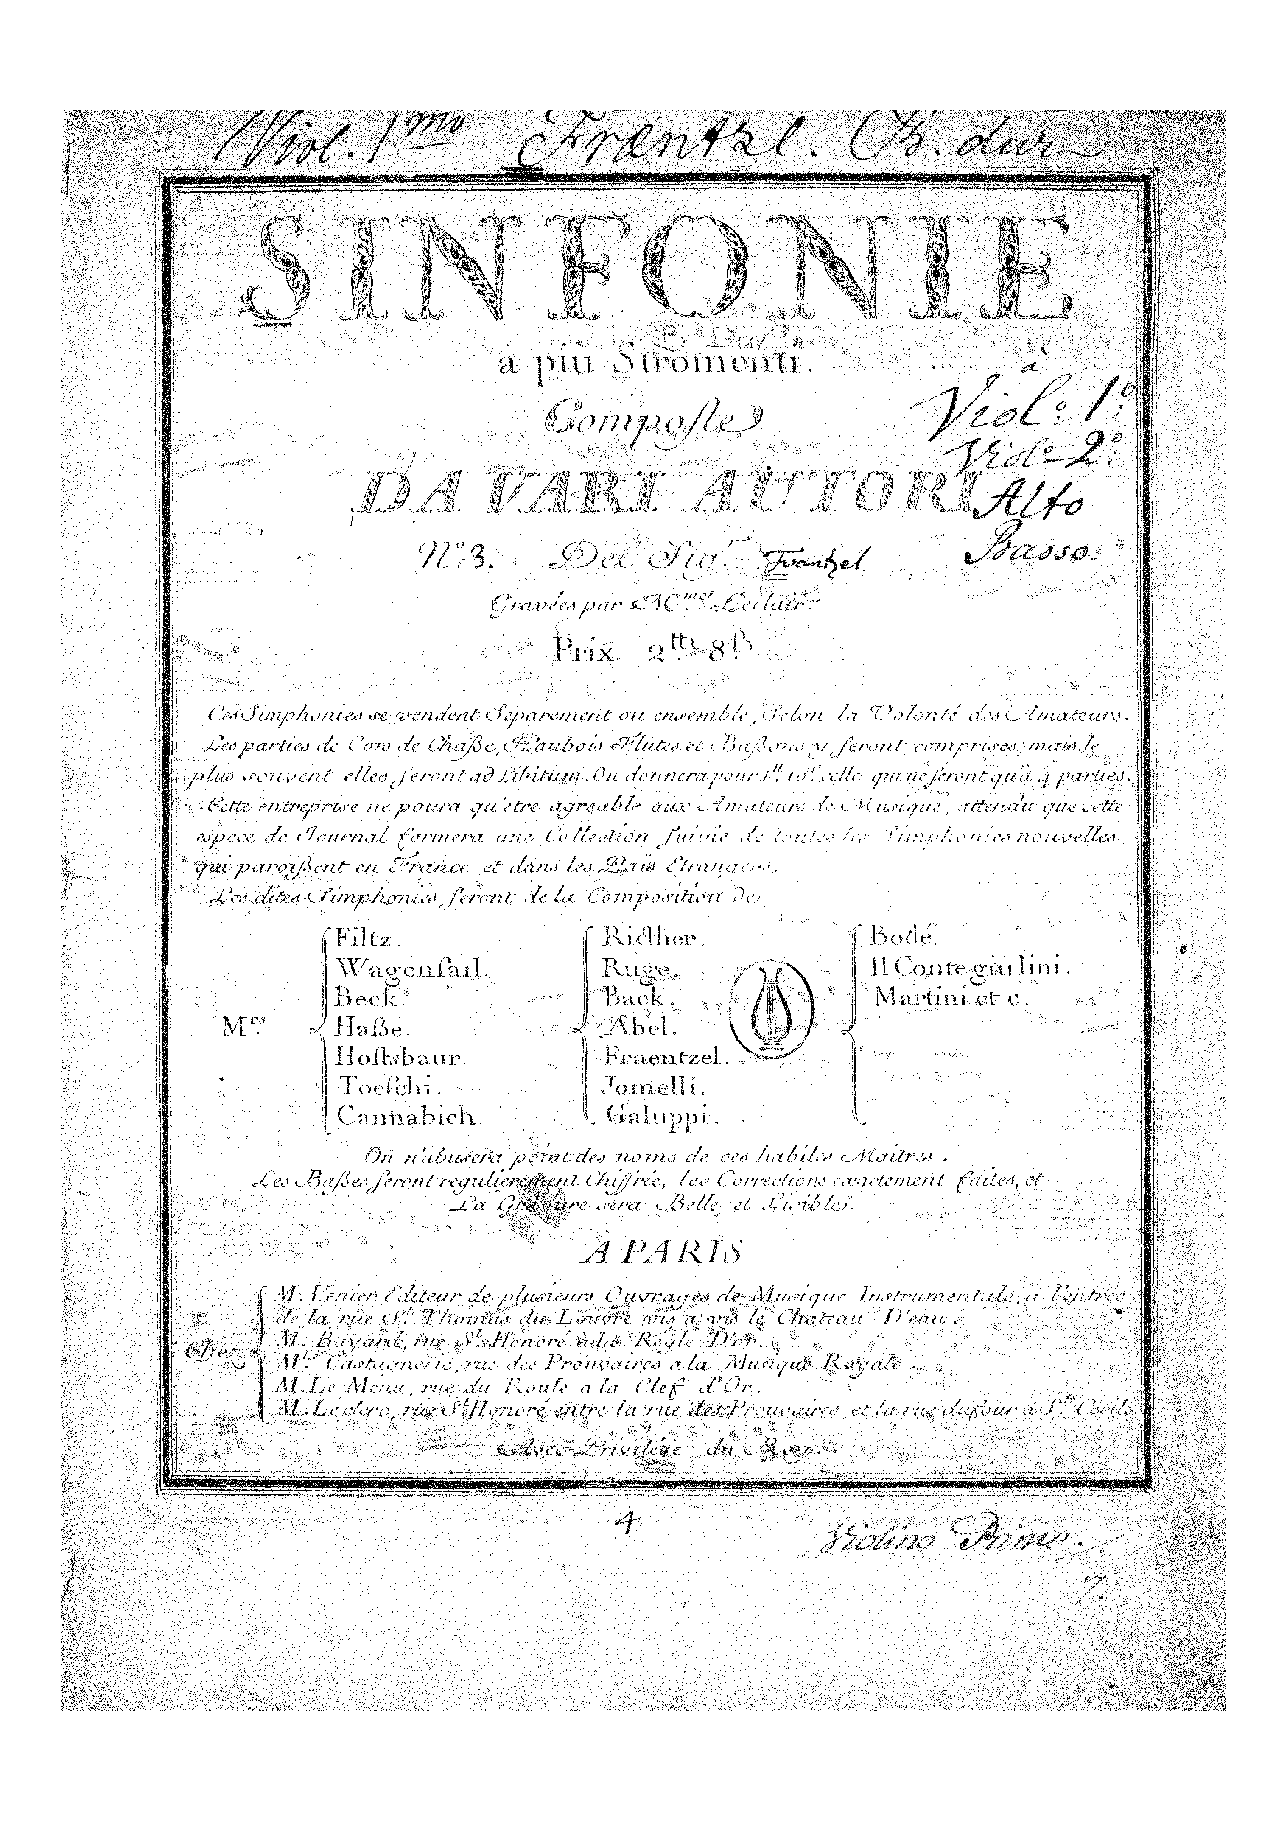 Viol. 1mo Fræntzl. B. dur
SINFONIE
a piu Stromenti.
Composte
DA VARI AUTORI
à
Viol.o 1o:
Viol.o 2o:
Alto
Basso.
No. 3. Del Sigr. Frentzel
Gravées par Mme. Leclair
Prix 2tt. 8s.
Ces Simphonies se vendent Separement ou ensemble, Selon la Volonté des Amateurs.
Les parties de Cors de Chaße, Haubois Flutes et Baßons y seront comprises, mais le
plus souvent elles seront ad Libitum. On donnera pour 1tt. 16s. celle qui ne seront qu'à 4 parties.
Cette entreprise ne poura qu'etre agreable aux Amateurs de Musique, attendu que cette
espece de Journal formera une Collection suivie de toutes les Simphonies nouvelles
qui paroißent en France et dans les Païs Etrangers.
Les dites Simphonies seront de la Composition de
Mrs.
Filtz.
Wagenseil.
Beck.
Haße.
Holtzbaur.
Toeschi.
Cannabich.
Ricther.
Ruge.
Back.
Abel.
Fraentzel.
Jomelli.
Galuppi.
Bodé.
Il Conte giulini.
Martini et c.
On n'abusera point des noms de ces habiles Maitres.
Les Baßes seront regulierement Chiffrée, les Corrections exactement faites, et
La Gravure sera Belle et Lisible.
A PARIS
Chez
M. Venier Editeur de plusieurs Ouvrages de Musique Instrumentale, a l'entrée
de la rue St. Thomas du Louvre vis a vis le Chateau D'eau.
M. Bayard, rue St. Honoré à la Regle D'or.
Mlle Castagnerie, rue des Prouvaires a la Musique Royale.
M. Le Menu, rue du Roule a la Clef d'Or.
M. Leclerc, rue St. Honoré entre la rue des Prouvaires et la rue dufour à Ste. Cecile
Avec Privilege du Roy.
4
Violino Primo.